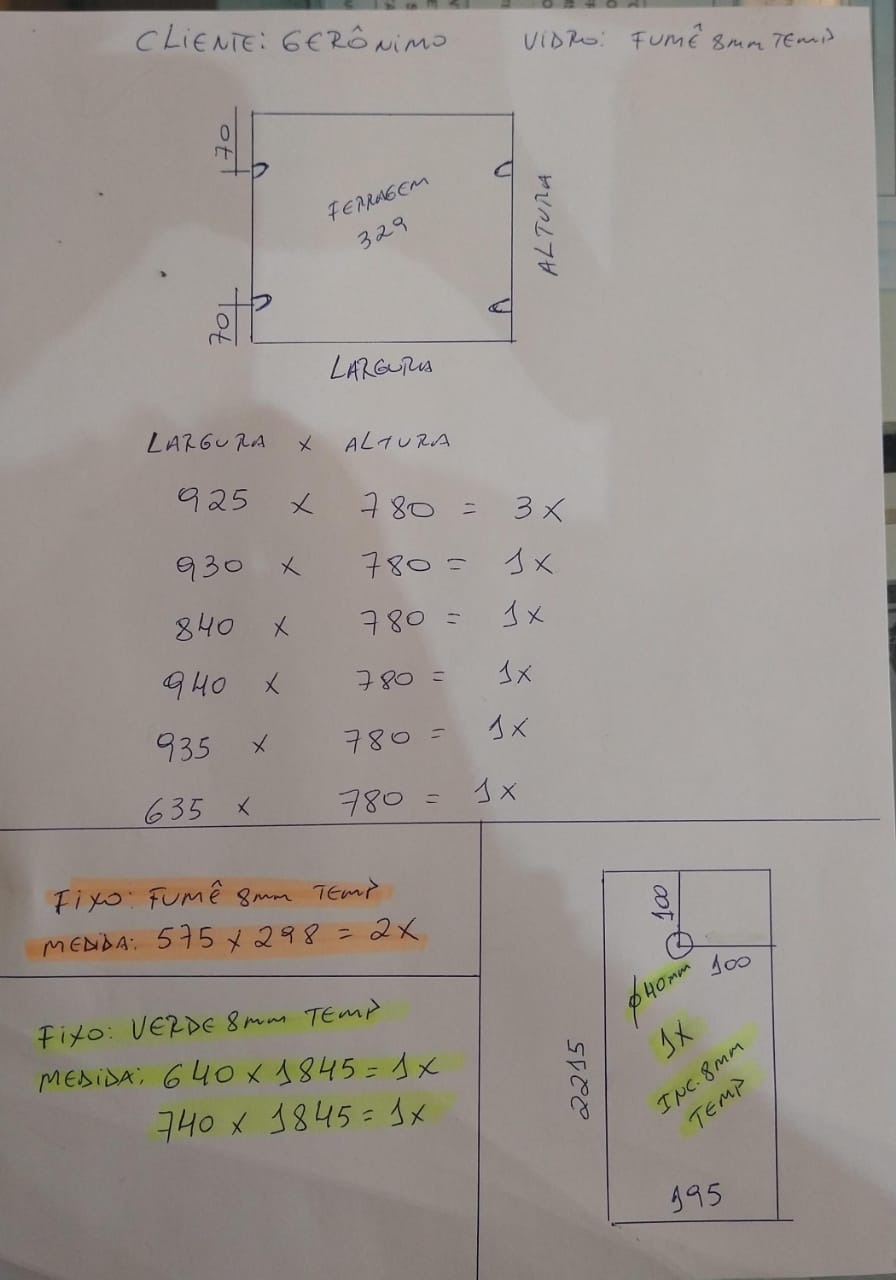 CLIENTE: GERÔNIMO VIDRO: FUMÊ 8mm TEMP
70
FERRAGEM
329
ALTURA
70
LARGURA
LARGURA X ALTURA
925 X 780 = 3X
930 X 780 = 1X
840 X 780 = 1X
940 X 780 = 1X
935 X 780 = 1X
635 X 780 = 1X
FIXO: FUMÊ 8mm TEMP
MEDIDA: 575 X 298 = 2X
FIXO: VERDE 8mm TEMP
MEDIDA: 640 X 1845 = 1X
740 X 1845 = 1X
100
100
ϕ40mm
1X
INC. 8mm
TEMP
2215
195